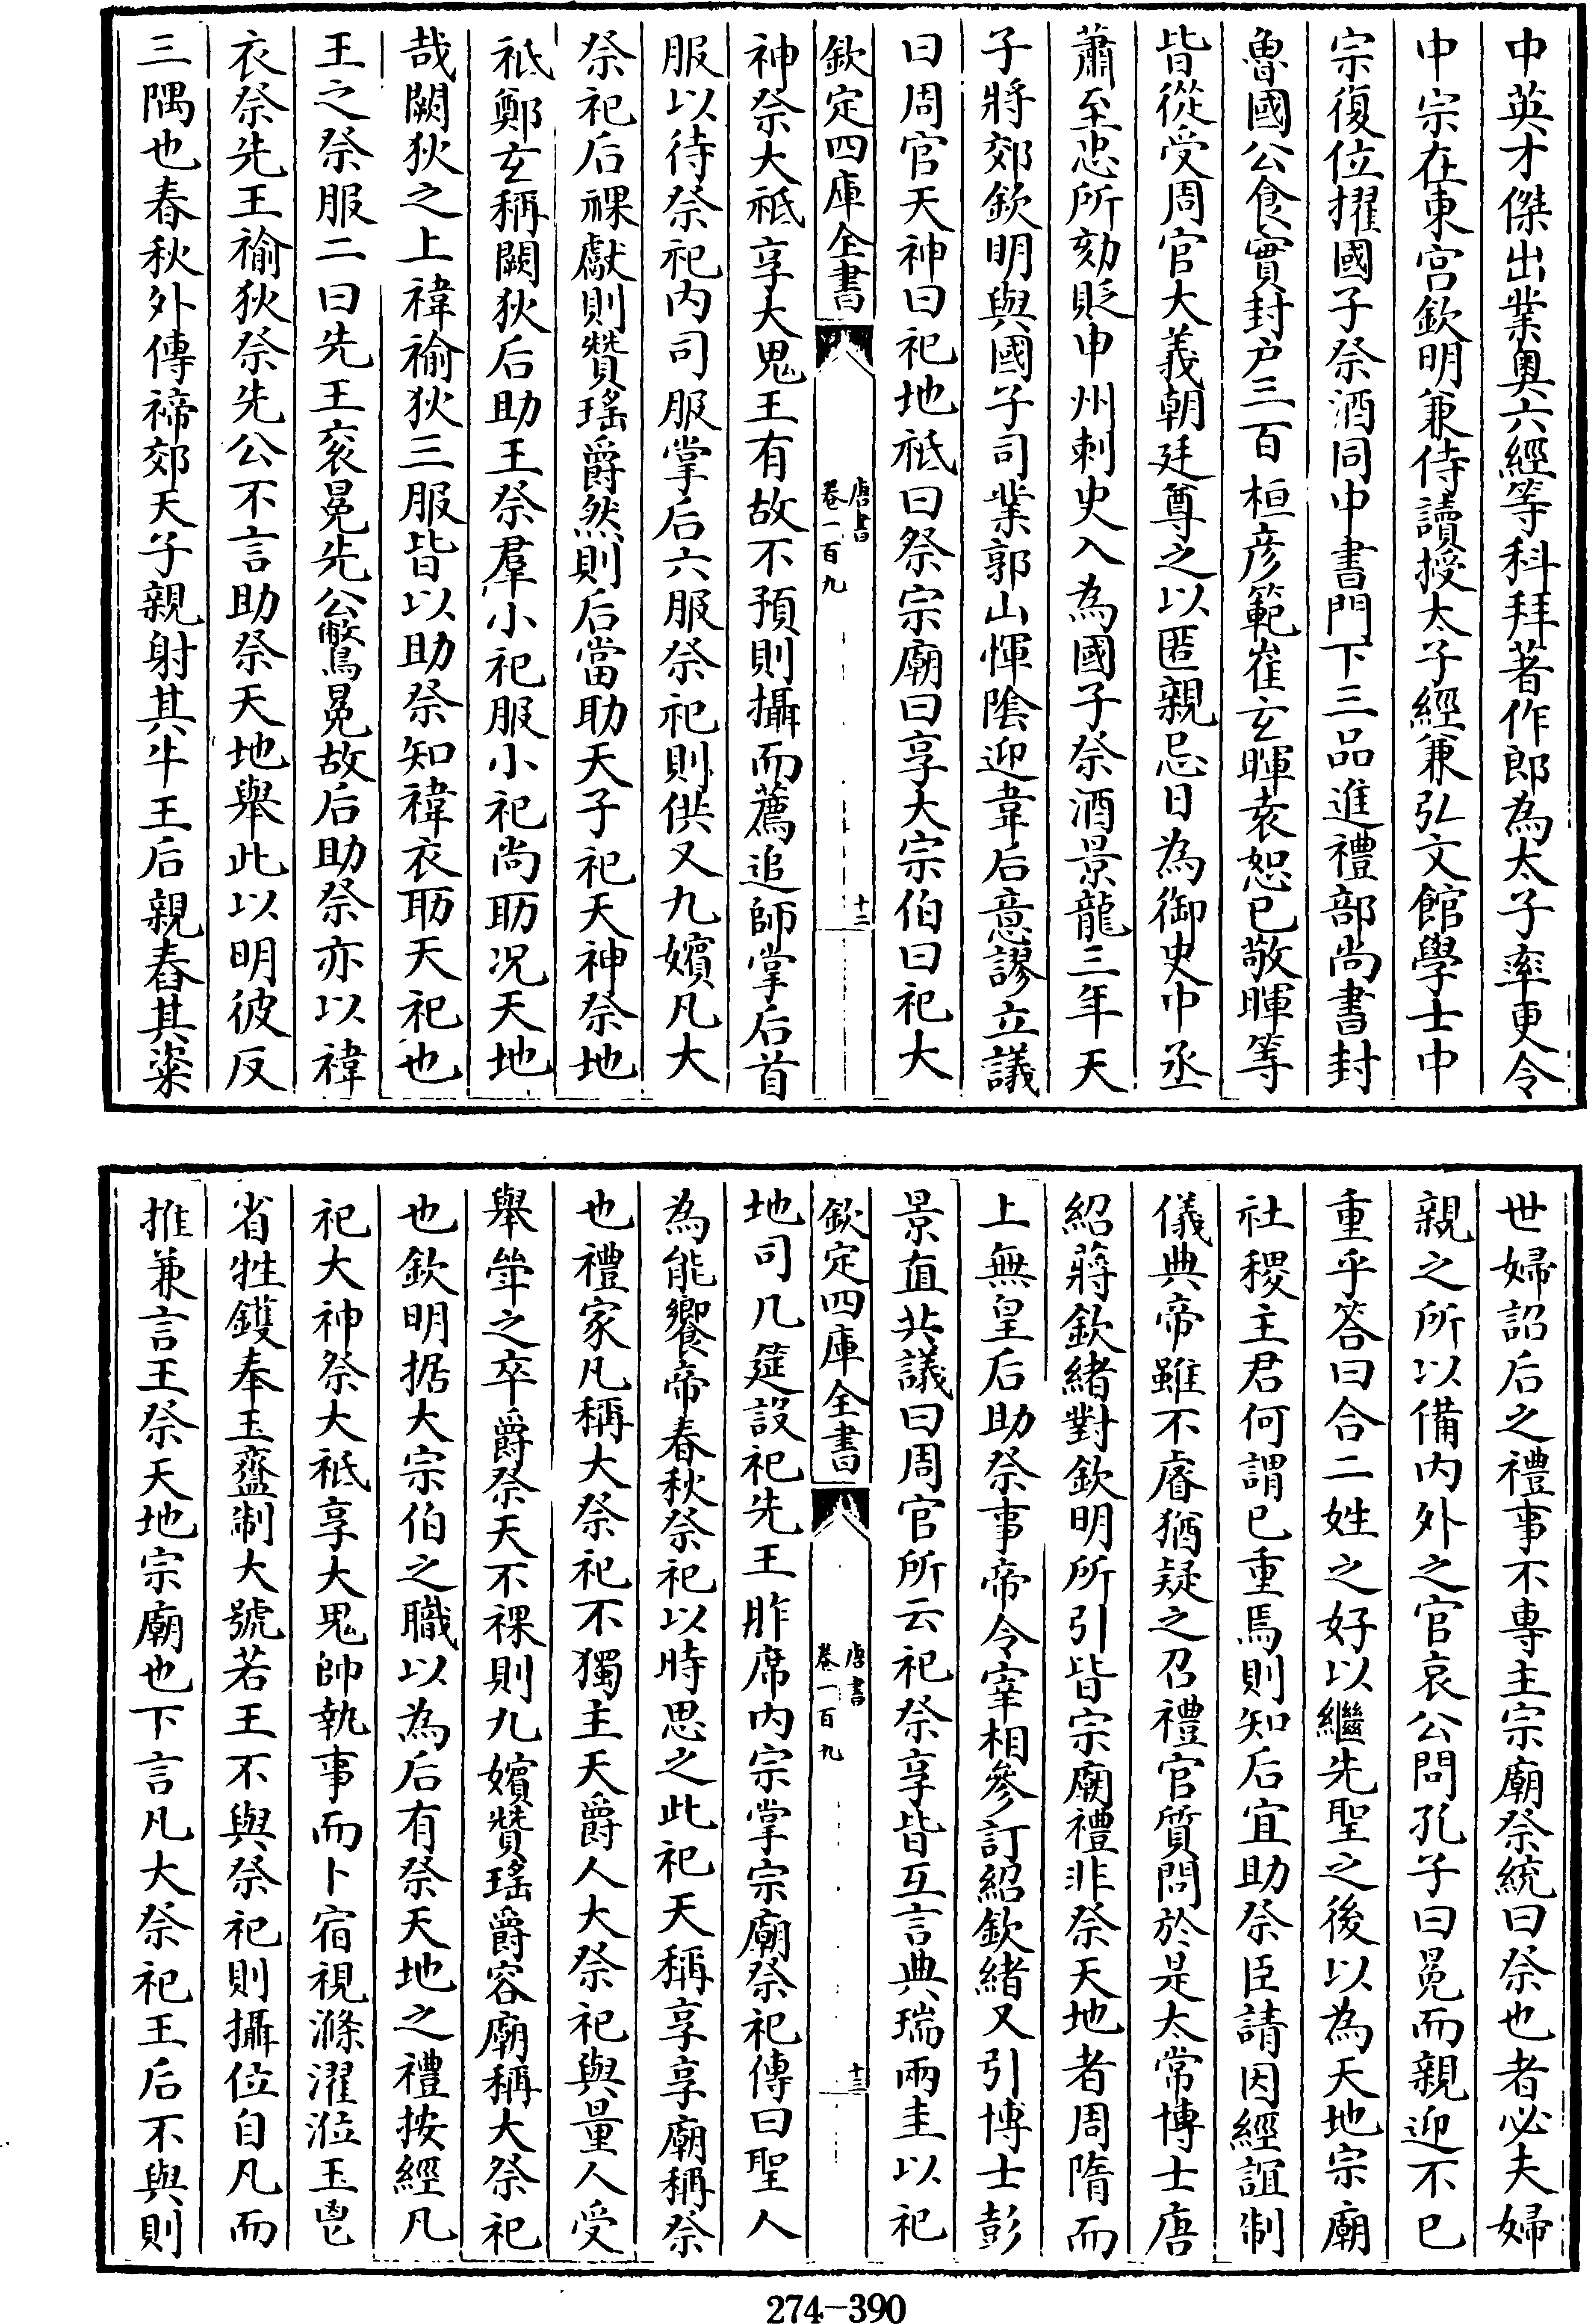 中英才傑出業奧六經等科拜著作郎為太子率更令
中宗在東宫欽明兼侍讀授太子經兼弘文館學士中
宗復位擢國子祭酒同中書門下三品進禮部尚書封
魯國公食實封户三百桓彥範崔玄暉袁恕已敬暉等
皆從受周官大義朝廷尊之以匿親忌日為御史中丞
蕭至忠所劾貶申州刺史入為國子祭酒景龍三年天
子將郊欽明與國子司業郭山惲陰迎韋后意謬立議
曰周官天神曰祀地祗曰祭宗廟曰享大宗伯曰祀大
欽定四庫全書
唐書
卷一百九
十二
神祭大祗享大鬼王有故不預則攝而薦追師掌后首
服以待祭祀内司服掌后六服祭祀則供又九嬪凡大
祭祀后祼獻則贊瑤爵然則后當助天子祀天神祭地
祗鄭玄稱闕狄后助王祭羣小祀服小祀尚助况天地
哉闕狄之上褘褕狄三服皆以助祭知褘衣助天祀也
王之祭服二曰先王衮冕先公鷩冕故后助祭亦以褘
衣祭先王褕狄祭先公不言助祭天地舉此以明彼反
三隅也春秋外傳禘郊天子親射其牛王后親舂其粢
世婦詔后之禮事不專主宗廟祭統曰祭也者必夫婦
親之所以備内外之官哀公問孔子曰冕而親迎不已
重乎答曰合二姓之好以繼先聖之後以為天地宗廟
社稷主君何謂已重焉則知后宜助祭臣請因經誼制
儀典帝雖不睿猶疑之召禮官質問於是太常博士唐
紹蔣欽緒對欽明所引皆宗廟禮非祭天地者周隋而
上無皇后助祭事帝令宰相參訂紹欽緒又引博士彭
景直共議曰周官所云祀祭享皆互言典瑞兩圭以祀
欽定四庫全書
唐書
卷一百九
十三
地司几筵設祀先王胙席内宗掌宗廟祭祀傳曰聖人
為能饗帝春秋祭祀以時思之此祀天稱享享廟稱祭
也禮家凡稱大祭祀不獨主天爵人大祭祀與量人受
舉斝之卒爵祭天不祼則九嬪贊瑤爵容廟稱大祭祀
也欽明据大宗伯之職以為后有祭天地之禮按經凡
祀大神祭大祗享大鬼帥執事而卜宿視滌濯涖玉鬯
省牲鑊奉玉齍制大號若王不與祭祀則攝位自凡而
推兼言王祭天地宗廟也下言凡大祭祀王后不與則
274-390